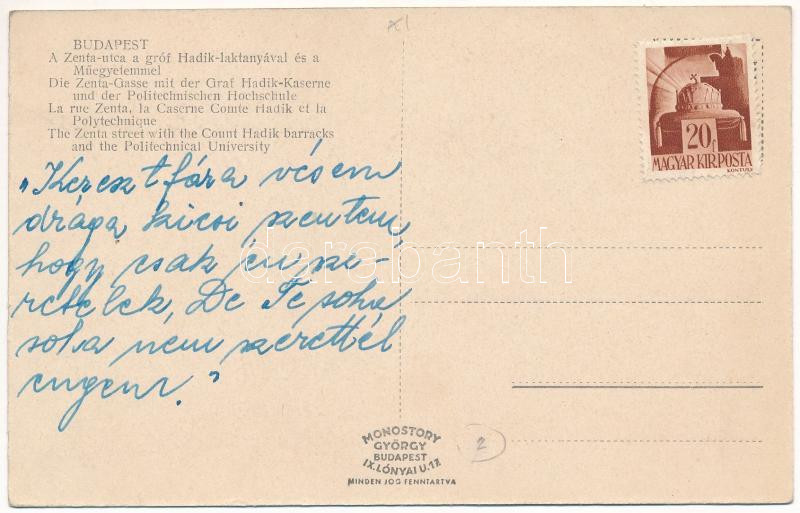 BUDAPEST
A Zenta-utca a gróf Hadik-laktanyával és a
Műegyetemmel
Die Zenta-Gasse mit der Graf Hadik-Kaserne
und der Politechnischen Hochschule
La rue Zenta, la Caserne Comte Hadik et la
Polytechnique
The Zenta street with the Count Hadik barracks
and the Politechnical University
„Keresztfára vésem
drága, kicsi szentem,
hogy csak én sze-
retelek, De Te soha
soha nem szerettél
engem."
20f
MAGYAR KIR. POSTA
KONTULY
darabanth
MONOSTORY
GYÖRGY
BUDAPEST
IX. LÓNYAI U. 17
MINDEN JOG FENNTARTVA
2